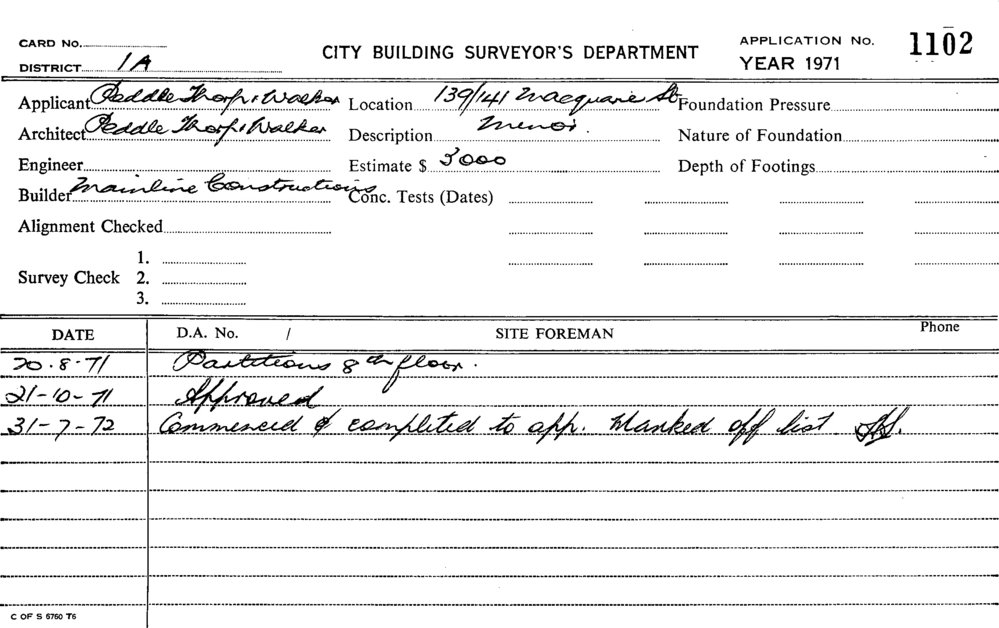 CARD No.
CITY BUILDING SURVEYOR'S DEPARTMENT
APPLICATION No. 1102
DISTRICT 1A
YEAR 1971
Applicant Peddle Thorp & Walker Location 139/141 Macquarie St Foundation Pressure
Architect Peddle Thorp & Walker Description Minor. Nature of Foundation
Engineer Estimate $ 3000 Depth of Footings
Builder Mainline Constructions Conc. Tests (Dates)
Alignment Checked
1.
Survey Check 2.
3.
DATE D.A. No. / SITE FOREMAN Phone
20.8.71 Partitions 8th floor.
21-10-71 Approved
31-7-72 Commenced & completed to app. Marked off list
C OF S 6760 T6